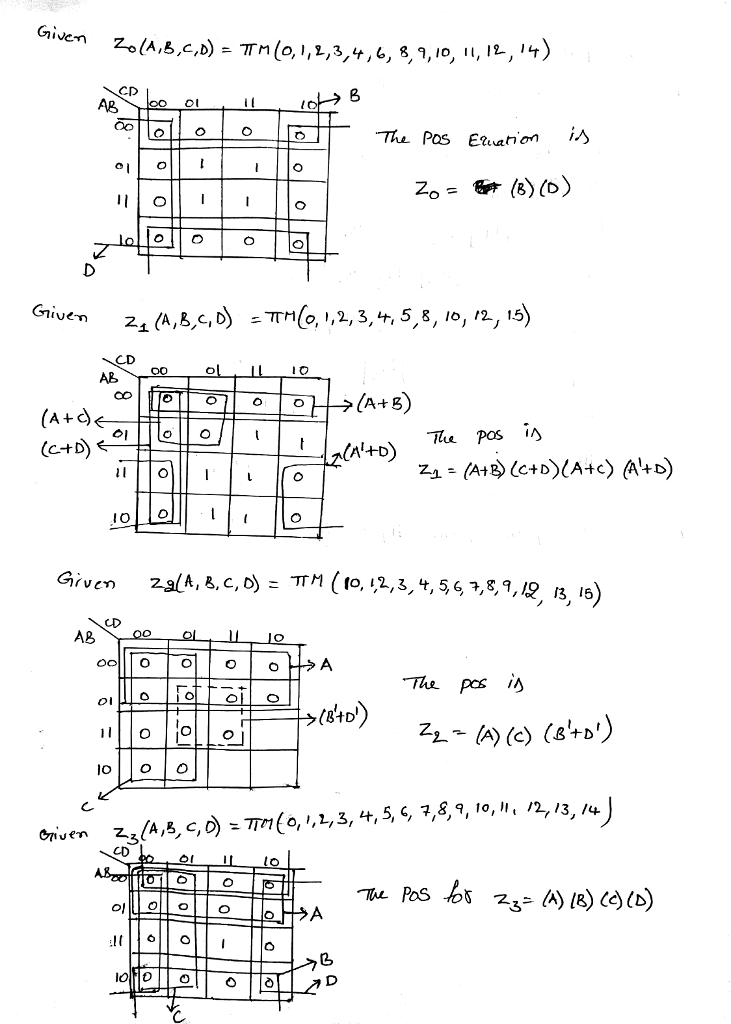 Given Z0(A,B,C,D) = πM(0,1,2,3,4,6,8,9,10,11,12,14)
CD
AB 00 01 11 10 → B
00 0 0 0 0
The POS Equation is
01 0 1 1 0
Z0 = (B)(D)
11 0 1 1 0
10 0 0 0 0
D
Given Z1(A,B,C,D) = πM(0,1,2,3,4,5,8,10,12,15)
CD
AB 00 01 11 10
00 0 0 0 0 → (A+B)
(A+C)
01 0 0 1 1
(C+D)
(A'+D)
The pos is
11 0 1 1 0
Z1 = (A+B)(C+D)(A+C)(A'+D)
10 0 1 1 0
Given Z2(A,B,C,D) = πM(10,1,2,3,4,5,6,7,8,9,12,13,15)
CD
AB 00 01 11 10
00 0 0 0 0 → A
The pos is
01 0 0 0 0
→ (B'+D')
11 0 0 0
Z2 = (A)(C)(B'+D')
10 0 0
C
Given Z3(A,B,C,D) = πM(0,1,2,3,4,5,6,7,8,9,10,11,12,13,14)
CD
AB 00 01 11 10
00 0 0 0 0
The POS for Z3 = (A)(B)(C)(D)
01 0 0 0 0 → A
11 0 0 1 0
B
10 0 0 0 0
D
C